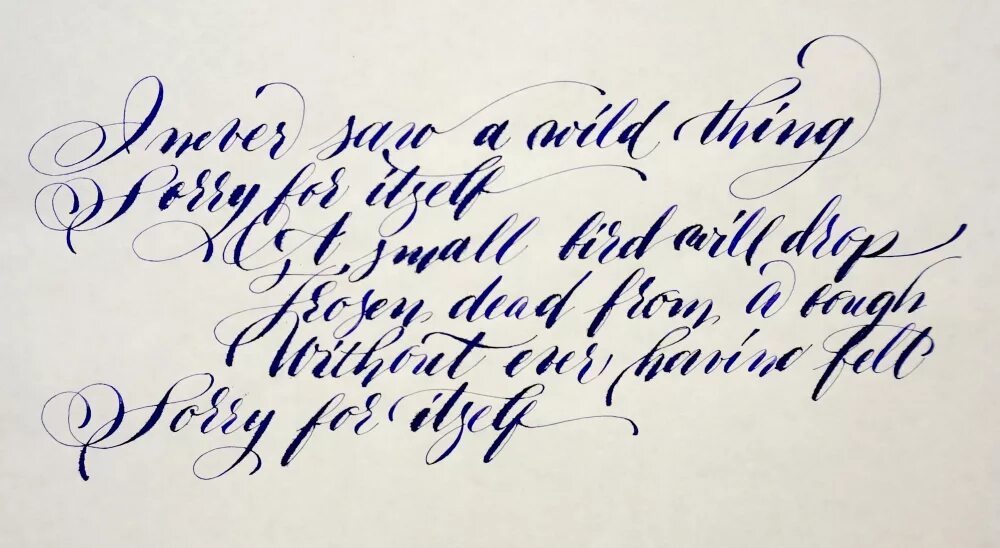 I never saw a wild thing
Sorry for itself
A small bird will drop
Frozen dead from a bough
Without ever having felt
Sorry for itself